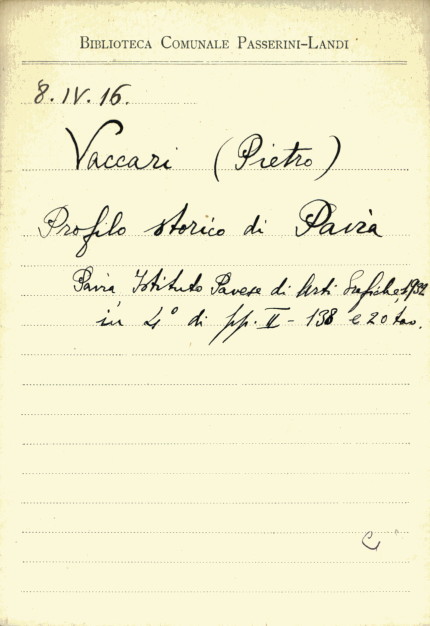 BIBLIOTECA COMUNALE PASSERINI-LANDI
8.IV.16.
Vaccari (Pietro)
Profilo storico di Pavia
Pavia Istituto Pavese di Arti Grafiche 1932
in 4° di pp. II - 138 e 20 tav.